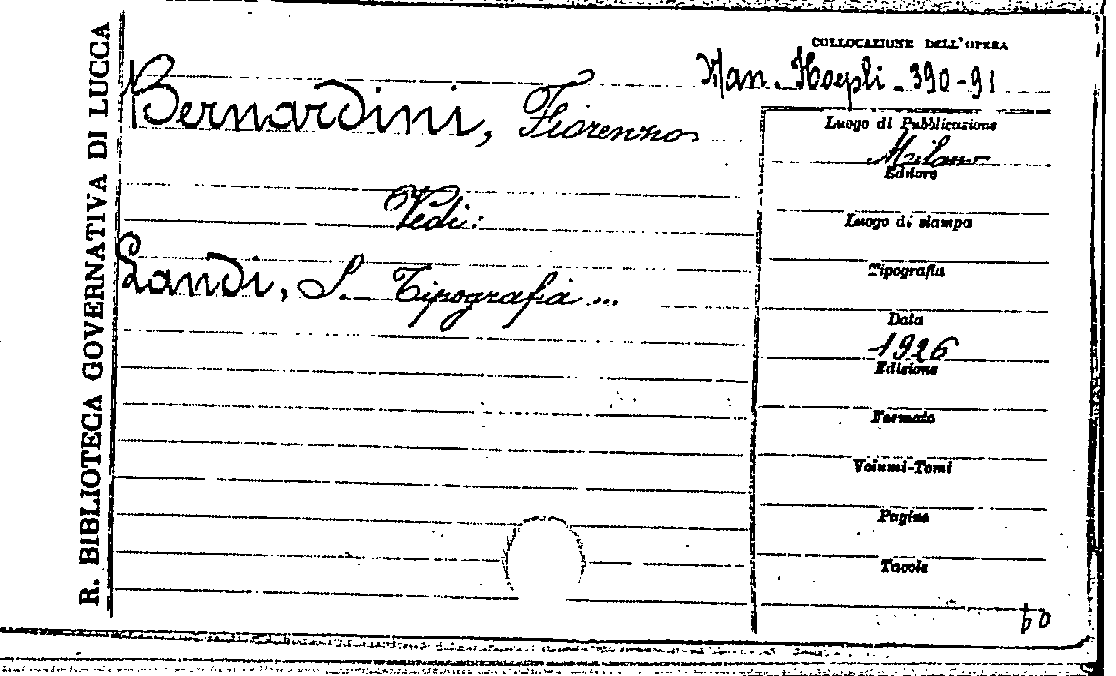 R. BIBLIOTECA GOVERNATIVA DI LUCCA
COLLOCAZIONE DELL'OPERA
Man. Hoepli - 390-91
Bernardini, Fiorenzo
Vedi:
Landi, S. Tipografia...
Luogo di Pubblicazione
Milano
Editore
Luogo di stampa
Tipografia
Data
1926
Edizione
Formato
Volumi-Tomi
Pagine
Tavole
bo